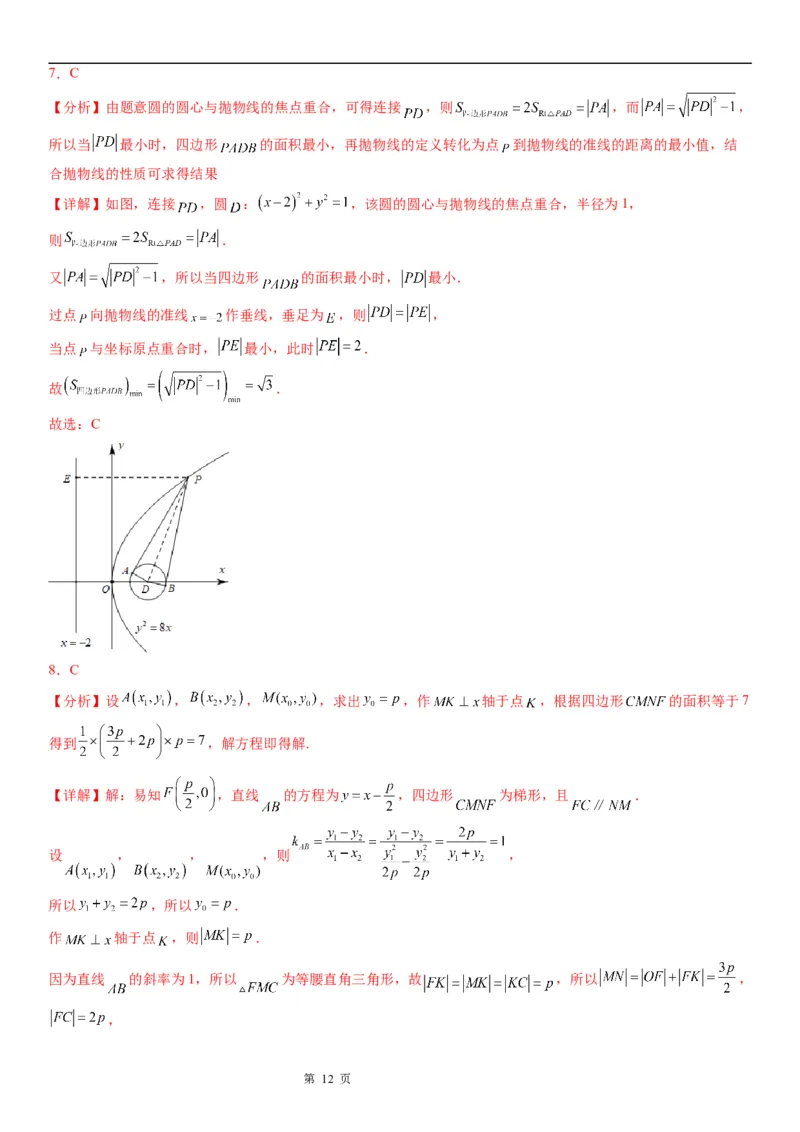 7．C
【分析】由题意圆的圆心与抛物线的焦点重合，可得连接 PD ，则 S四边形PADB = 2S Rt△PAD = |PA| ，而 |PA| = √(|PD|² −1) ，
所以当 |PD| 最小时，四边形 PADB 的面积最小，再抛物线的定义转化为点 P 到抛物线的准线的距离的最小值，结
合抛物线的性质可求得结果
【详解】如图，连接 PD ，圆 D ：(x−2)² + y² = 1，该圆的圆心与抛物线的焦点重合，半径为 1，
则 S四边形PADB = 2S Rt△PAD = |PA| ．
又 |PA| = √(|PD|² −1) ，所以当四边形 PADB 的面积最小时，|PD| 最小．
过点 P 向抛物线的准线 x = −2 作垂线，垂足为 E ，则 |PD| = |PE| ，
当点 P 与坐标原点重合时，|PE| 最小，此时 |PE| = 2 ．
故 (S四边形PADB)min = (√(|PD|² −1))min = √3 ．
故选：C
y
E
P
A
x
O
D
B
y² = 8x
x = −2
8．C
【分析】设 A(x₁, y₁) ，B(x₂, y₂) ，M(x₀, y₀) ，求出 y₀ = p ，作 MK ⊥ x 轴于点 K ，根据四边形 CMNF 的面积等于 7
得到 1/2 × (3p/2 + 2p) × p = 7 ，解方程即得解.
【详解】解：易知 F(p/2, 0) ，直线 AB 的方程为 y = x − p/2 ，四边形 CMNF 为梯形，且 FC // NM ．
设 A(x₁, y₁) ，B(x₂, y₂) ，M(x₀, y₀) ，则 k_AB = (y₁ − y₂)/(x₁ − x₂) = (y₁ − y₂)/(y₁²/2p − y₂²/2p) = 2p/(y₁ + y₂) = 1 ，
所以 y₁ + y₂ = 2p ，所以 y₀ = p ．
作 MK ⊥ x 轴于点 K ，则 |MK| = p ．
因为直线 AB 的斜率为 1，所以 △FMC 为等腰直角三角形，故 |FK| = |MK| = |KC| = p ，所以 |MN| = |OF| + |FK| = 3p/2 ，
|FC| = 2p ，
第 12 页